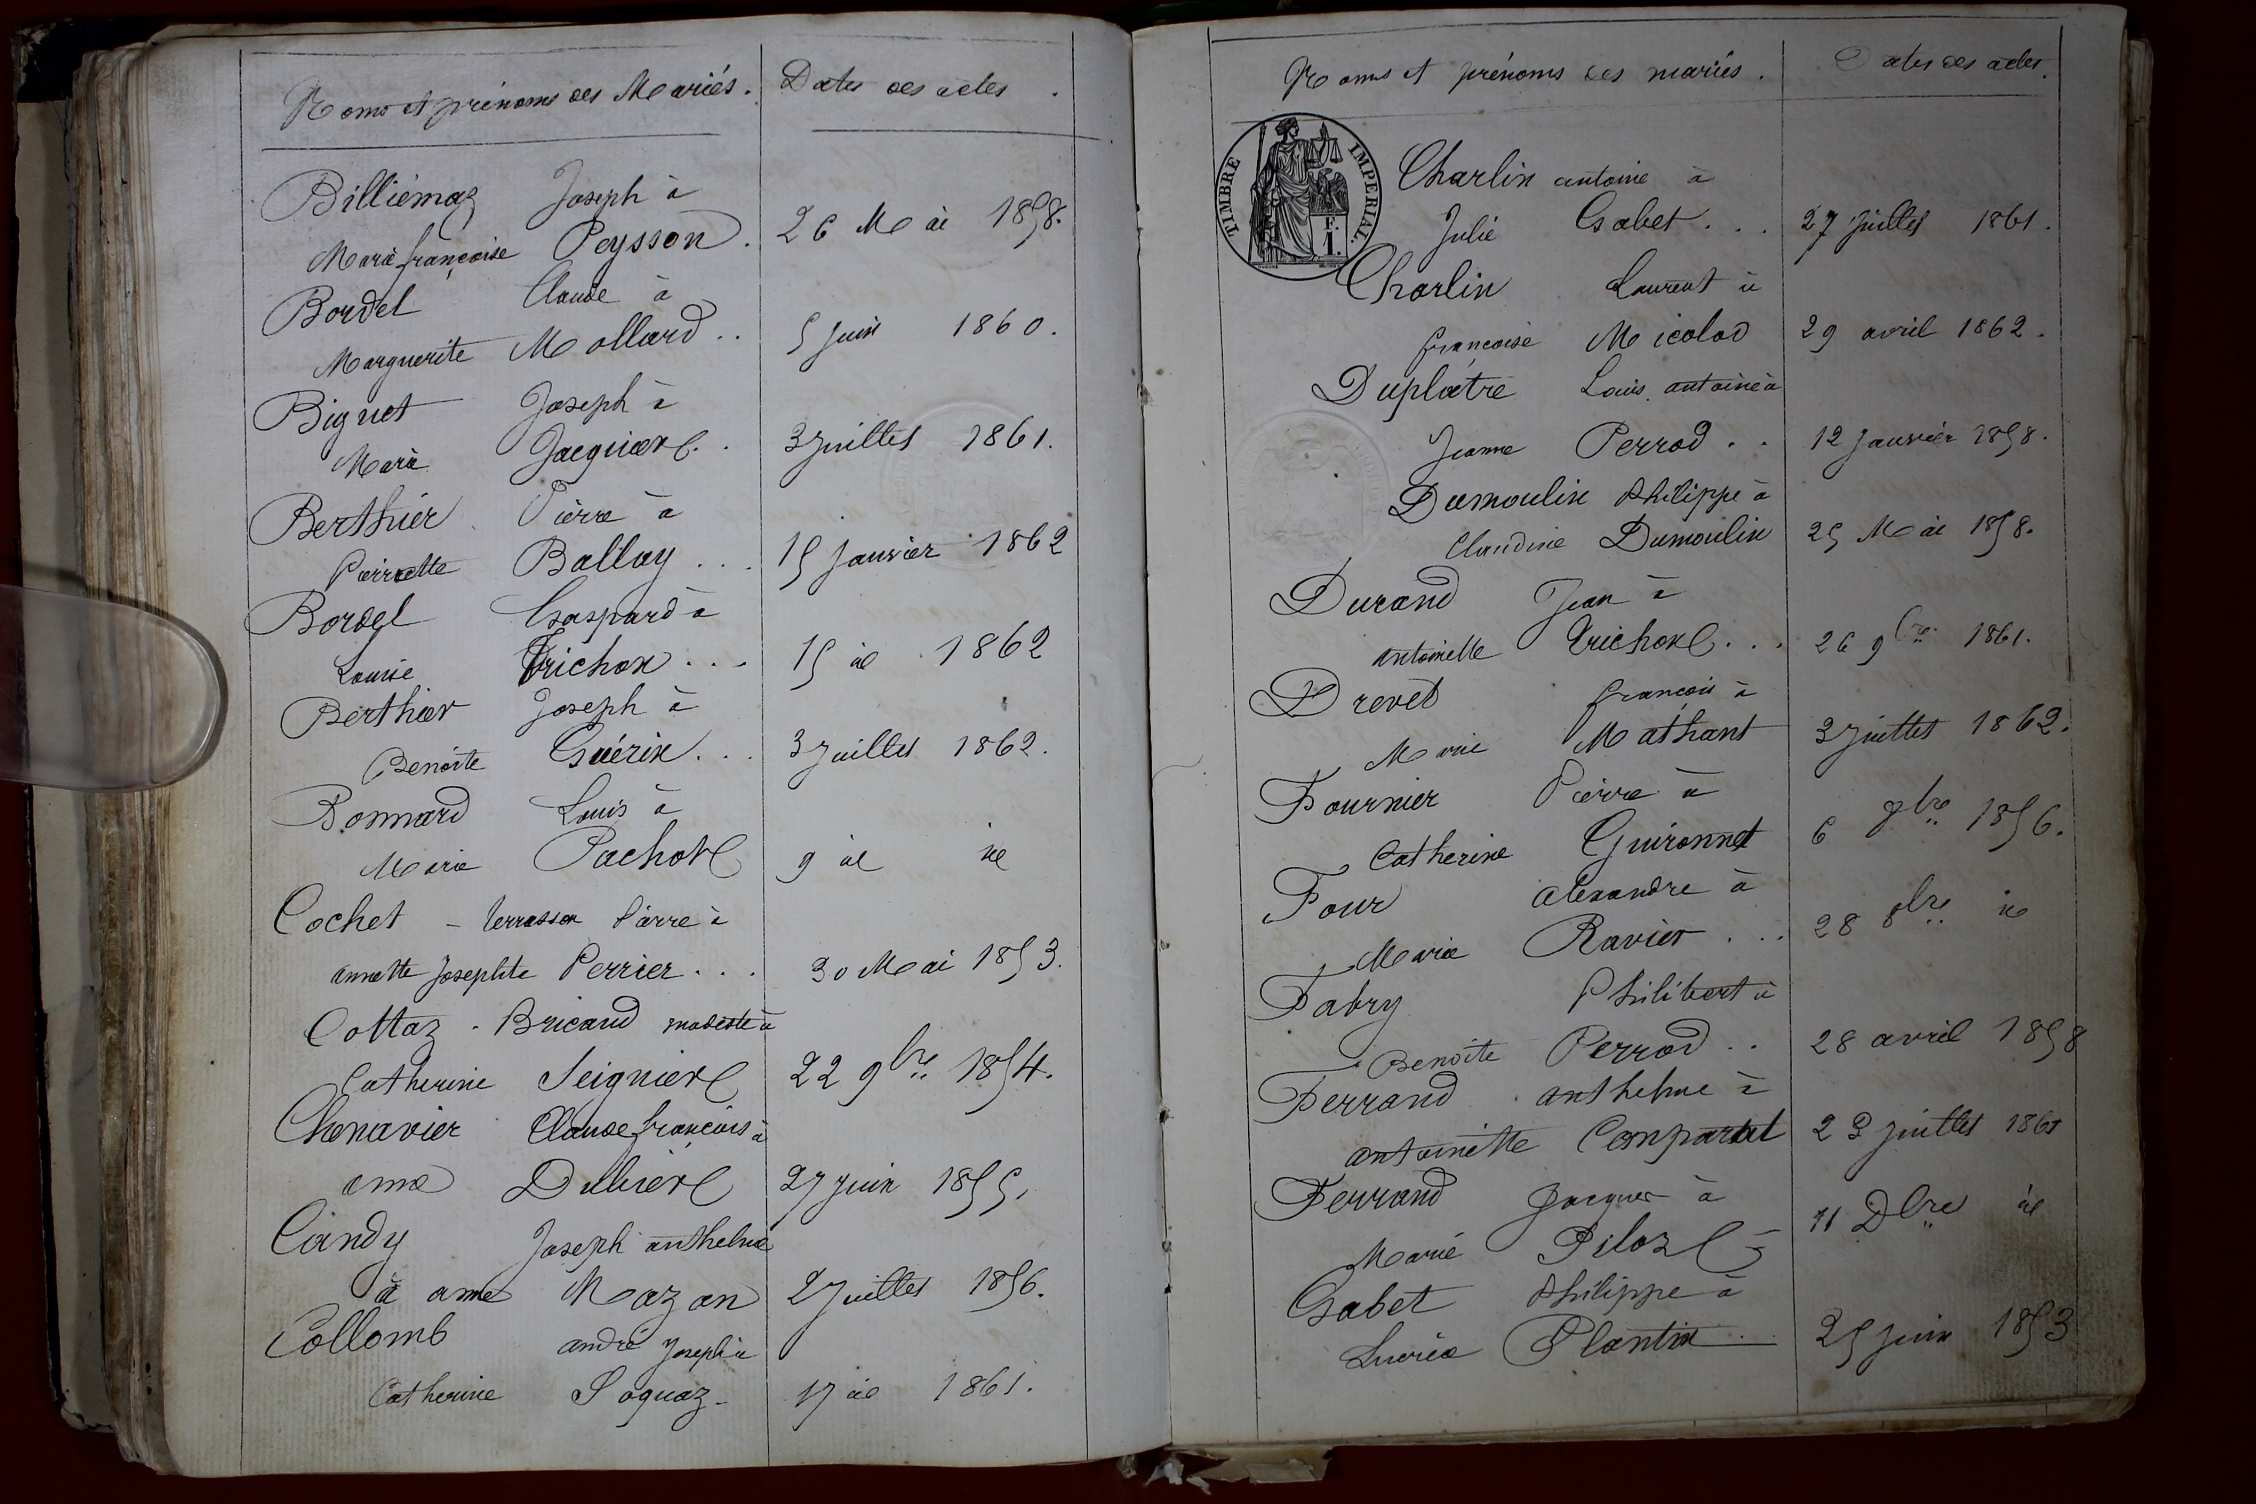 Noms et prénoms des Mariés. Dates des actes.
Billiémaz Joseph à
Marie françoise Peysson. 26 Mai 1858.
Bordel Claude à
Marguerite Mollard.. 5 Juin 1860.
Biguet Joseph à
Marie Jacquier.. 3 Juillet 1861.
Berthier Pierre à
Pierrette Ballay... 15 Janvier 1862
Bordel Gaspard à
Louise Trichon... 15 id 1862
Berthier Joseph à
Benoite Guérin... 3 Juillet 1862.
Bonnard Louis à
Marie Pachot 9 id id
Cochet - terrasson Pierre à
annette Josephte Perrier... 30 Mai 1853.
Cottaz - Bricaud modeste à
Catherine Seignier 22 9bre 1854.
Chenavier Claude françois à
anne Dullier 27 Juin 1855.
Candy Joseph anthelme
à anne Mazan 2 Juillet 1856.
Collomb andré Joseph à
Catherine Soquaz - 17 id 1861.
Noms et prénoms des mariés. Dates des actes.
TIMBRE IMPERIAL.
F.
1.
Charlin antoine à
Julie Gabet... 27 Juillet 1861.
Charlin Laurent à
françoise Micolod 29 avril 1862.
Duplâtre Louis antoine à
Jeanne Perrod.. 12 Janvier 1858.
Dumoulin Philippe à
Claudine Dumoulin 25 Mai 1858.
Durand Jean à
antoinette Trichon... 26 9bre 1861.
Drevet françois à
Marie Mathant 3 Juillet 1862.
Fournier Pierre à
Catherine Guironnet 6 7bre 1856.
Four alexandre à
Marie Ravier... 28 8bre id
Fabry Philibert à
Benoite Perrod.. 28 avril 1858
Ferrand anthelme à
antoinette Comparat 23 Juillet 1861
Ferrand Jacques à
Marie Piloz 11 Dbre id
Gabet Philippe à
Lucrèce Plantin.. 25 Juin 1853